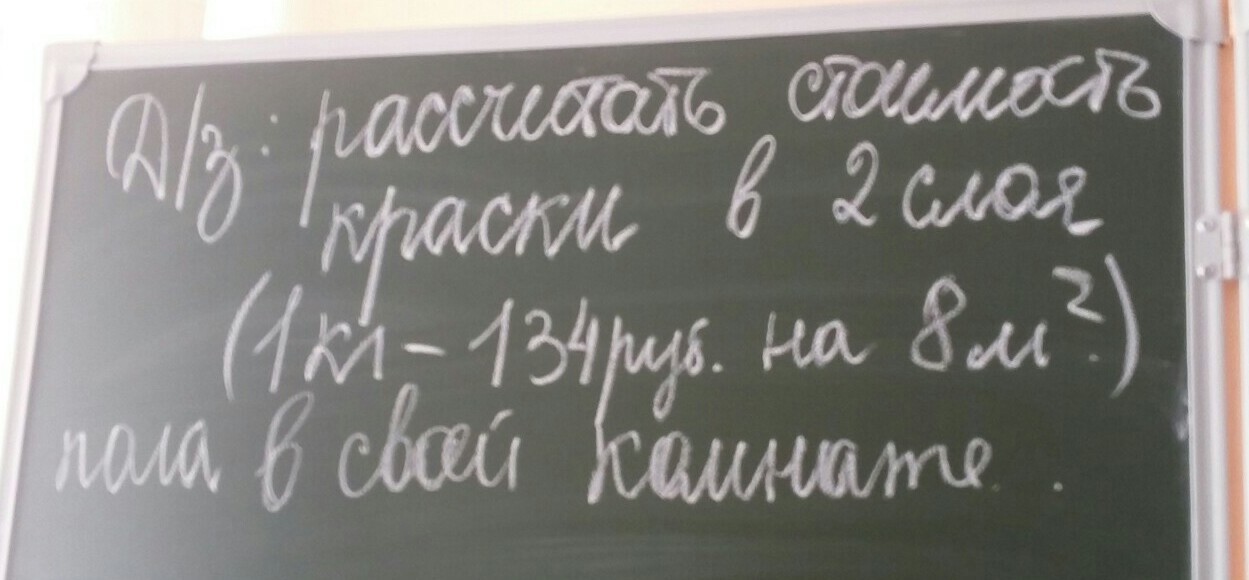 Д/з: рассчитать стоимость
краски в 2 слоя
(1кг - 134руб. на 8м².)
пола в своей комнате.